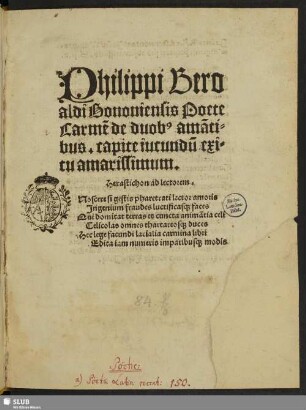 Philippi Bero
aldi Bononiensis Poete
Carmē de duobꝰ amāti-
bus. capite iucundū exi-
tu amarissimum.
Hexastichon ad lectorem.
Noscere si gestis pharetrati lector amoris
Ingenium fraudes luctificasqꝫ faces
Qui domitat terras et cuncta animātia celi
Celicolas omnes thartareosqꝫ duces
Hec lege facundi lacialia carmina libri
Edita iam numeris imparibusqꝫ modis.
84
150.
SLUB